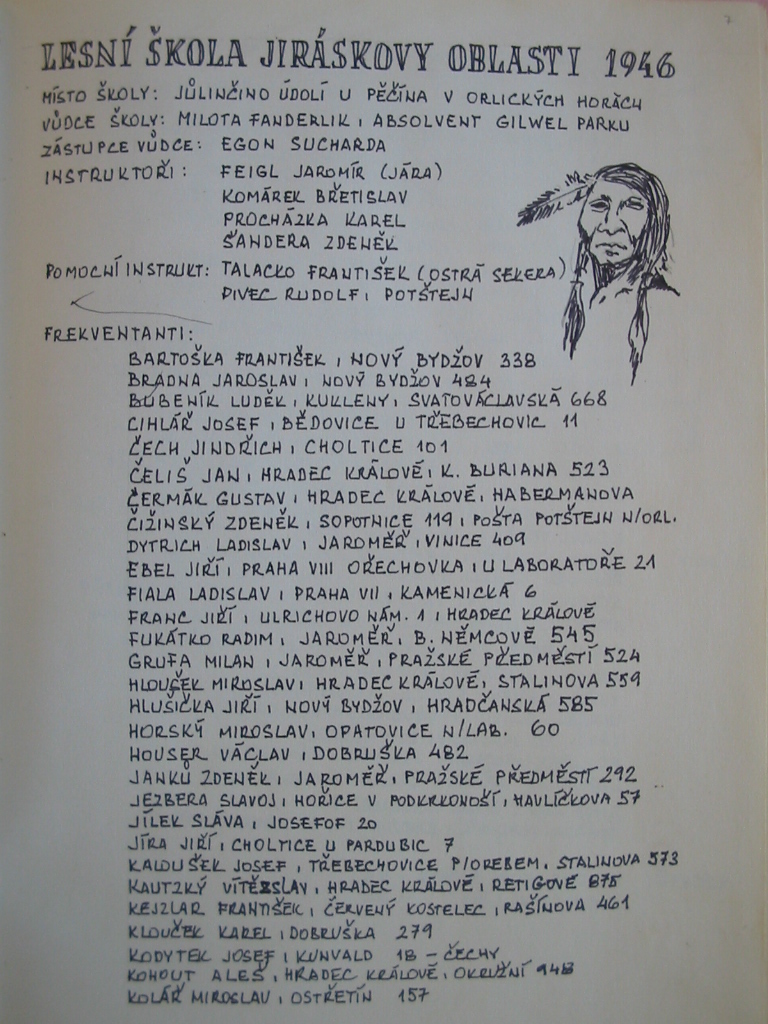 LESNÍ ŠKOLA JIRÁSKOVY OBLASTI 1946
MÍSTO ŠKOLY: JŮLINČINO ÚDOLÍ U PĚČÍNA V ORLICKÝCH HORÁCH
VŮDCE ŠKOLY: MILOTA FANDERLIK, ABSOLVENT GILWEL PARKU
ZÁSTUPCE VŮDCE: EGON SUCHARDA
INSTRUKTOŘI: FEIGL JAROMÍR (JÁRA)
KOMÁREK BŘETISLAV
PROCHÁZKA KAREL
ŠANDERA ZDENĚK
POMOCNÍ INSTRUKT: TALACKO FRANTIŠEK (OSTRÁ SEKERA)
DIVEC RUDOLF, POTŠTEJN
FREKVENTANTI:
BARTOŠKA FRANTIŠEK, NOVÝ BYDŽOV 338
BRADNA JAROSLAV, NOVÝ BYDŽOV 484
BUBENÍK LUDĚK, KUKLENY, SVATOVÁCLAVSKÁ 668
CIHLÁŘ JOSEF, BĚDOVICE U TŘEBECHOVIC 11
ČECH JINDŘICH, CHOLTICE 101
ČELIŠ JAN, HRADEC KRÁLOVÉ, K. BURIANA 523
ČERMÁK GUSTAV, HRADEC KRÁLOVÉ, HABERMANOVA
ČIŽINSKÝ ZDENĚK, SOPOTNICE 119, POŠTA POTŠTEJN N/ORL.
DYTRICH LADISLAV, JAROMĚŘ, VINICE 409
EBEL JIŘÍ, PRAHA VIII OŘECHOVKA, U LABORATOŘE 21
FIALA LADISLAV, PRAHA VII, KAMENICKÁ 6
FRANC JIŘÍ, ULRICHOVO NÁM. 1, HRADEC KRÁLOVÉ
FUKÁTKO RADIM, JAROMĚŘ, B. NĚMCOVÉ 545
GRUFA MILAN, JAROMĚŘ, PRAŽSKÉ PŘEDMĚSTÍ 524
HLOUŠEK MIROSLAV, HRADEC KRÁLOVÉ, STALINOVA 559
HLUŠIČKA JIŘÍ, NOVÝ BYDŽOV, HRADČANSKÁ 585
HORSKÝ MIROSLAV, OPATOVICE N/LAB. 60
HOUSER VÁCLAV, DOBRUŠKA 482
JANKŮ ZDENĚK, JAROMĚŘ, PRAŽSKÉ PŘEDMĚSTÍ 292
JEZBERA SLAVOJ, HOŘICE V PODKRKONOŠÍ, HAVLÍČKOVA 57
JÍLEK SLÁVA, JOSEFOF 20
JÍRA JIŘÍ, CHOLTICE U PARDUBIC 7
KALOUŠEK JOSEF, TŘEBECHOVICE P/OREBEM, STALINOVA 573
KAUTZKÝ VÍTĚZSLAV, HRADEC KRÁLOVÉ, RETIGOVÉ 875
KEJZLAR FRANTIŠEK, ČERVENÝ KOSTELEC, RAŠÍNOVA 461
KLOUČEK KAREL, DOBRUŠKA 279
KODYTEK JOSEF, KUNVALD 18 - ČECHY
KOHOUT ALEŠ, HRADEC KRÁLOVÉ, OKRUŽNÍ 948
KOLÁŘ MIROSLAV, OSTŘETÍN 157